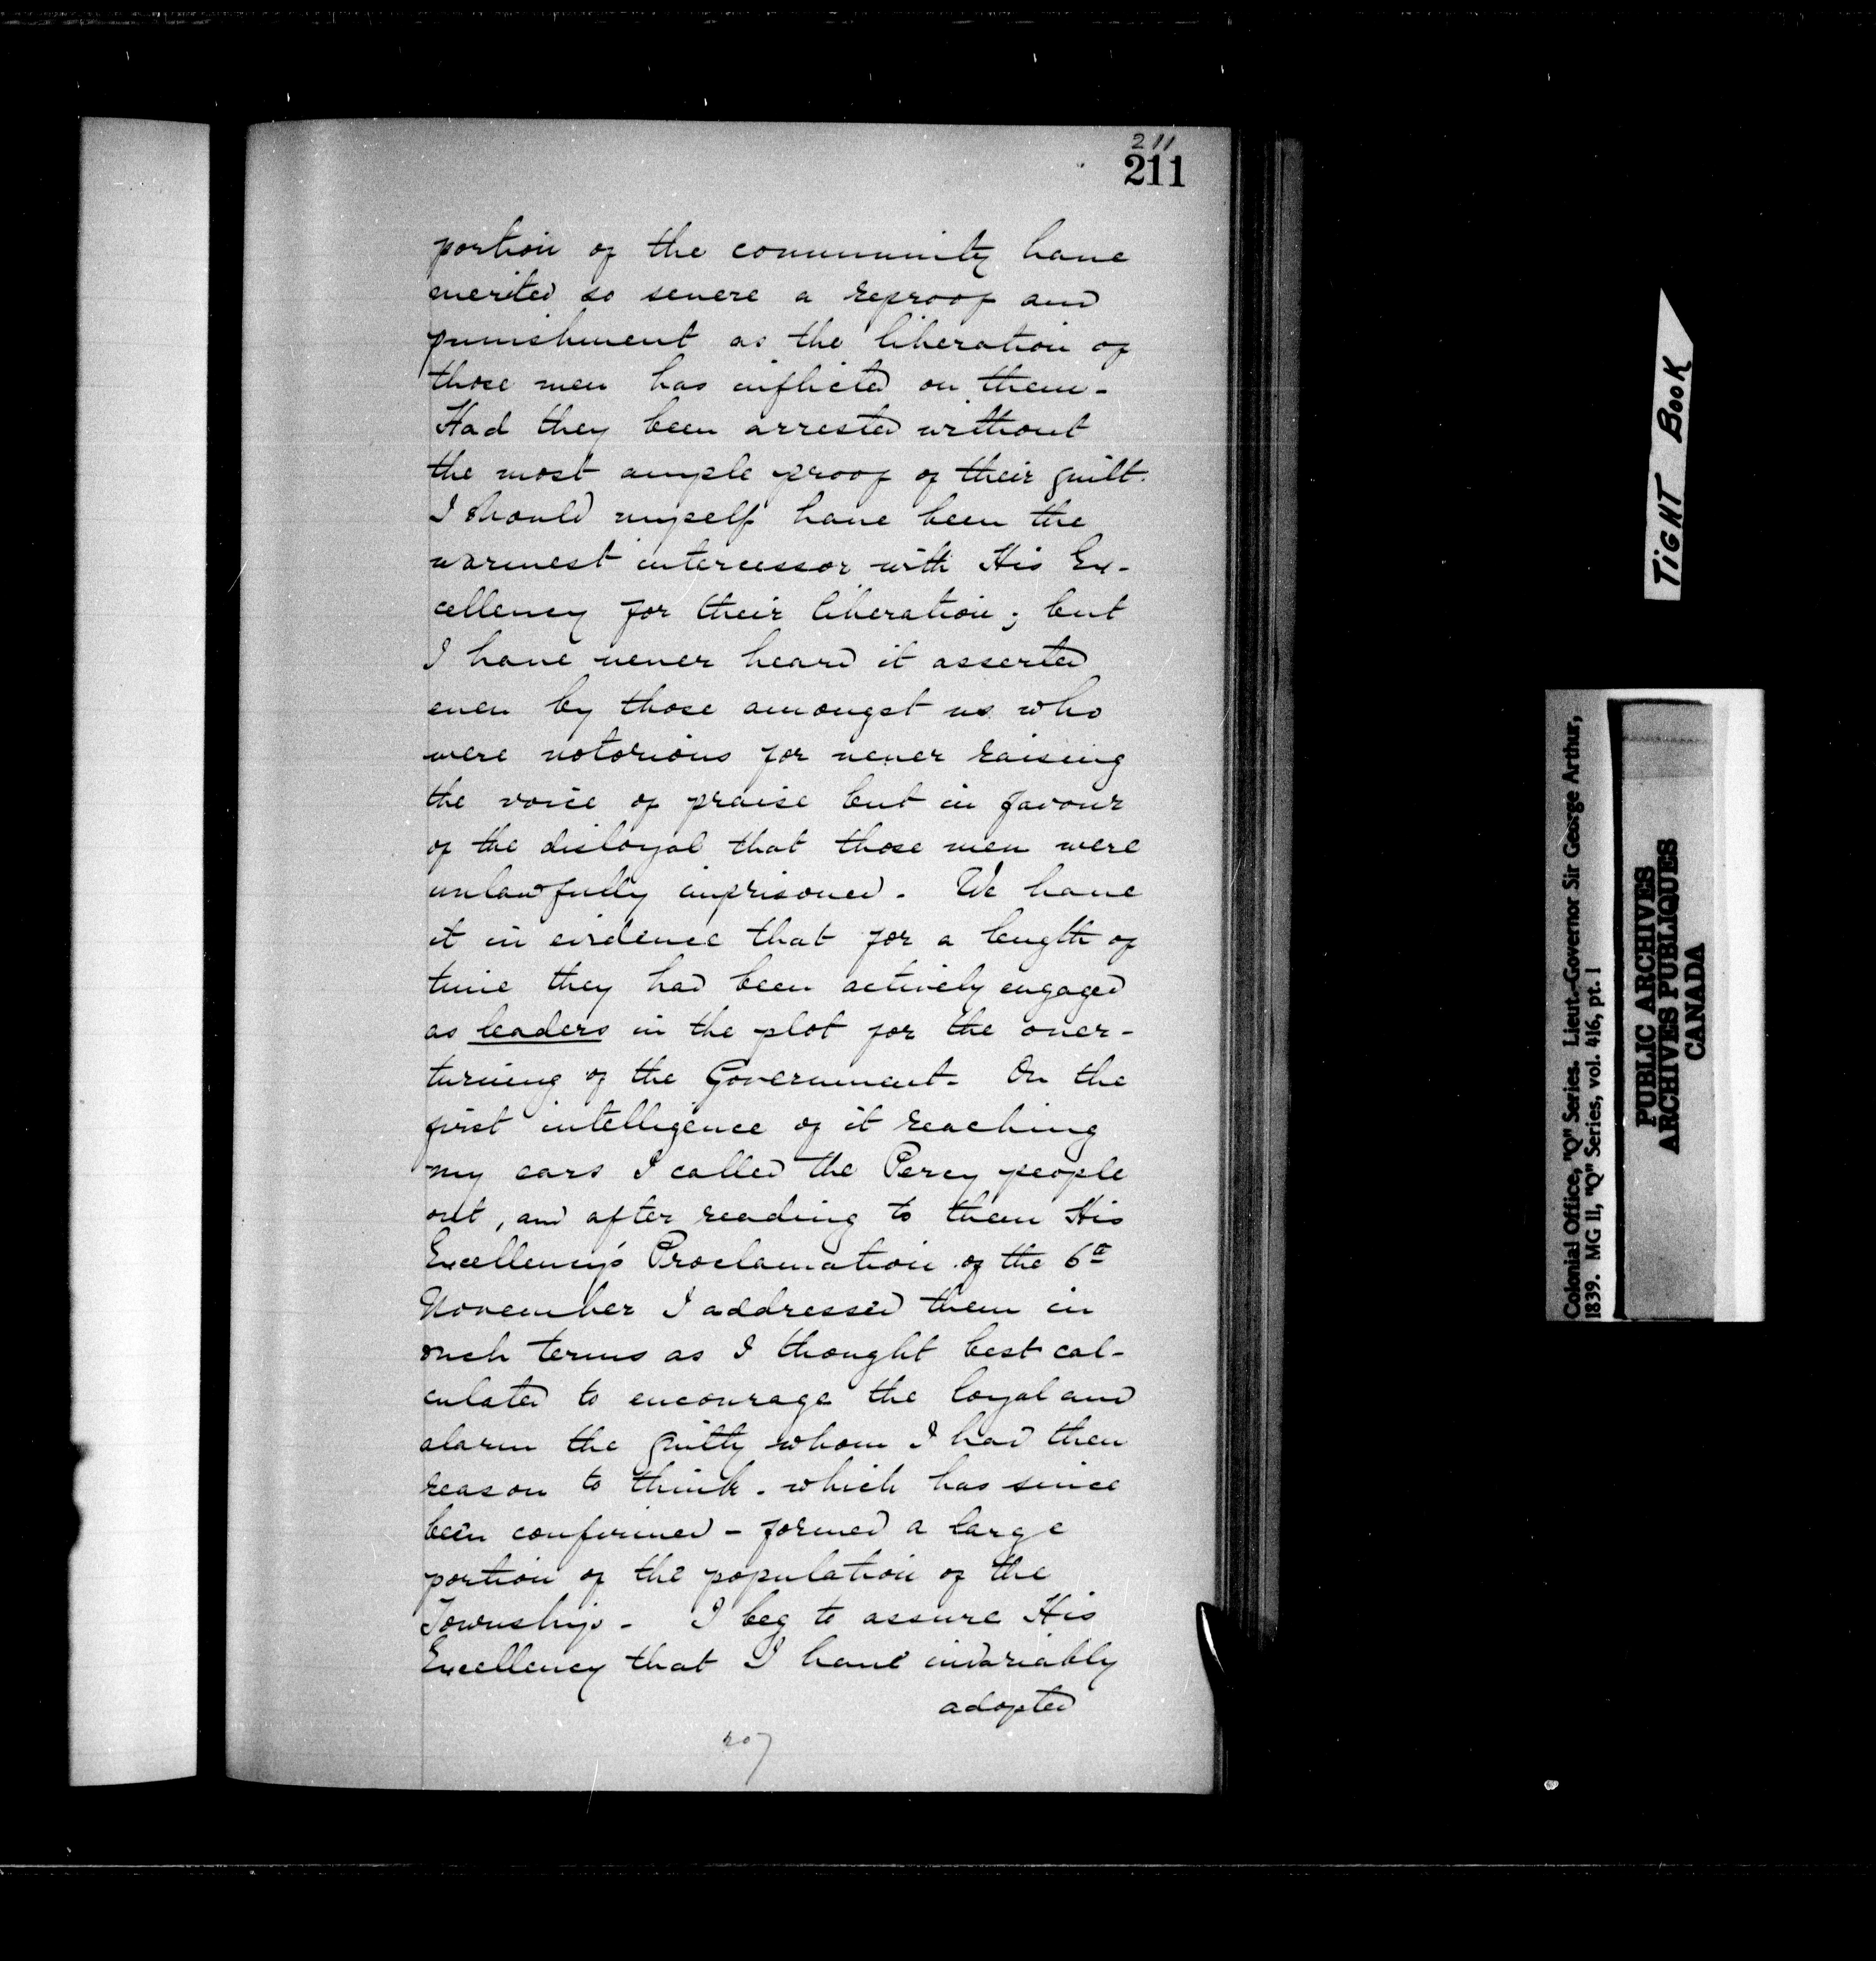 211
211
portion of the community have
merited so severe a reproof and
punishment as the liberation of
those men has inflicted on them -
Had they been arrested without
the most ample proof of their guilt.
I should myself have been the
warmest intercessor with His Ex-
cellency for their liberation; but
I have never heard it asserted
even by those amongst us who
were notorious for never raising
the voice of praise but in favour
of the disloyal that those men were
unlawfully imprisoned. We have
it in evidence that for a length of
time they had been actively engaged
as leaders in the plot for the over-
turning of the Government. On the
first intelligence of it reaching
my ears I called the Percy people
out, and after reading to them His
Excellency's Proclamation of the 6th
November I addressed them in
such terms as I thought best cal-
culated to encourage the loyal and
alarm the guilty whom I had then
reason to think - which has since
been confirmed - formed a large
portion of the population of the
Township - I beg to assure His
Excellency that I have invariably
adopted
207
TIGHT BOOK
Colonial Office, "Q" Series. Lieut.-Governor Sir George Arthur,
1839. MG 11, "Q" Series, vol. 416, pt. 1
PUBLIC ARCHIVES
ARCHIVES PUBLIQUES
CANADA